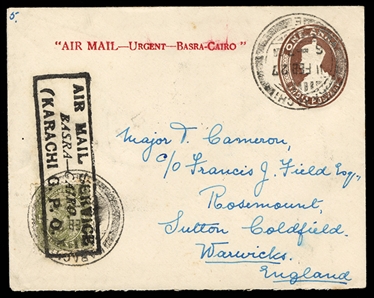 5.
"AIR MAIL—URGENT—BASRA-CAIRO"
ONE ANNA
INDIA POSTAGE
AIR MAIL SERVICE
BASRA-CAIRO
(KARACHI G.P.O.)
Major T. Cameron,
C/o Francis J. Field Esq.,
Rosemount,
Sutton Coldfield.
Warwicks.
England